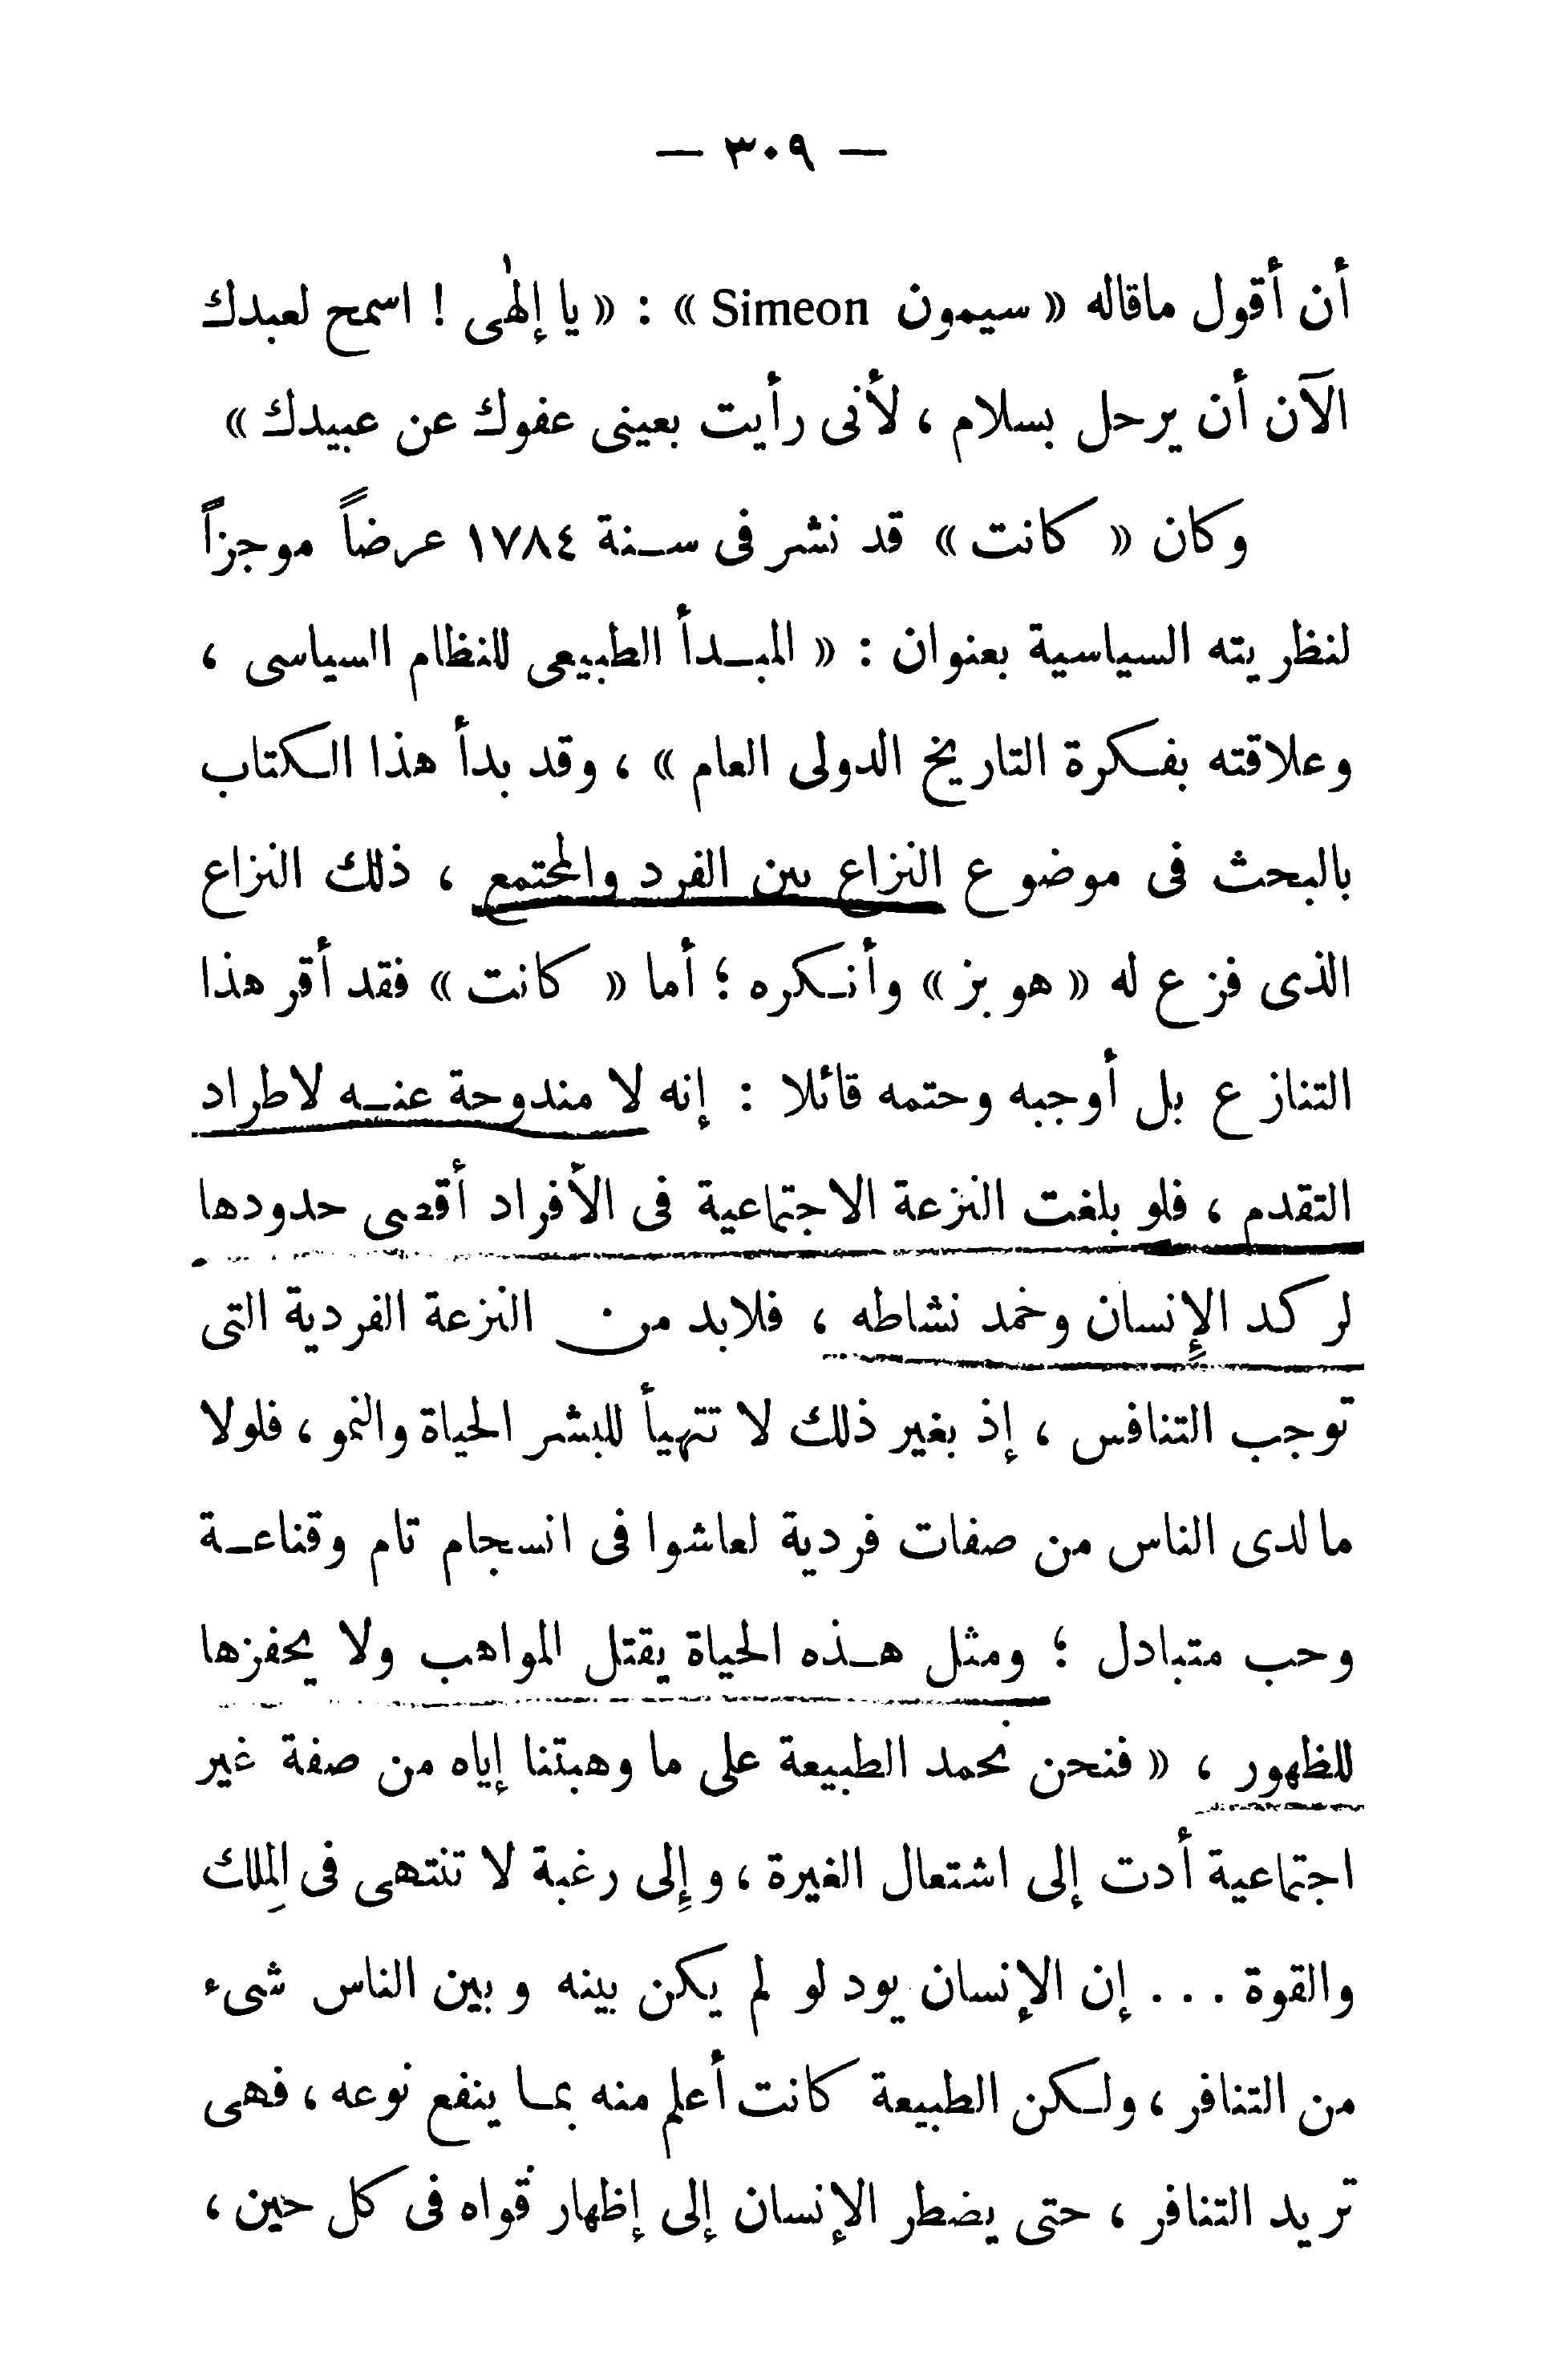 — ٣٠٩ —
أن أقول ماقاله « سيمون Simeon » : « يا إلٰهى ! اسمح لعبدك
الآن أن يرحل بسلام ، لأنى رأيت بعينى عفوك عن عبيدك »
وكان « كانت » قد نشر فى سـنة ١٧٨٤ عرضاً موجزاً
لنظريته السياسية بعنوان : « المبـدأ الطبيعى للنظام السياسى ،
وعلاقته بفـكرة التاريخ الدولى العام » ، وقد بدأ هذا الـكتاب
بالبحث فى موضوع النزاع بين الفرد والمجتمع ، ذلك النزاع
الذى فزع له « هوبز » وأنـكره ؛ أما « كانت » فقد أقر هذا
التنازع بل أوجبه وحتمه قائلا : إنه لا مندوحة عنـه لاطراد
التقدم ، فلو بلغت النزعة الاجتماعية فى الأفراد أقصى حدودها
لركد الإنسان وخمد نشاطه ، فلابد من النزعة الفردية التى
توجب التنافس ، إذ بغير ذلك لا تتهيأ للبشر الحياة والنمو ، فلولا
ما لدى الناس من صفات فردية لعاشوا فى انسجام تام وقناعـة
وحب متبادل ؛ ومثل هـذه الحياة يقتل المواهب ولا يحفزها
للظهور ، « فنحن نحمد الطبيعة على ما وهبتنا إياه من صفة غير
اجتماعية أدت إلى اشتعال الغيرة ، وإلى رغبة لا تنتهى فى المِلك
والقوة . . . إن الإنسان يود لو لم يكن بينه وبين الناس شىء
من التنافر ، ولـكن الطبيعة كانت أعلم منه بمـا ينفع نوعه ، فهى
تريد التنافر ، حتى يضطر الإنسان إلى إظهار قُواه فى كل حين ،